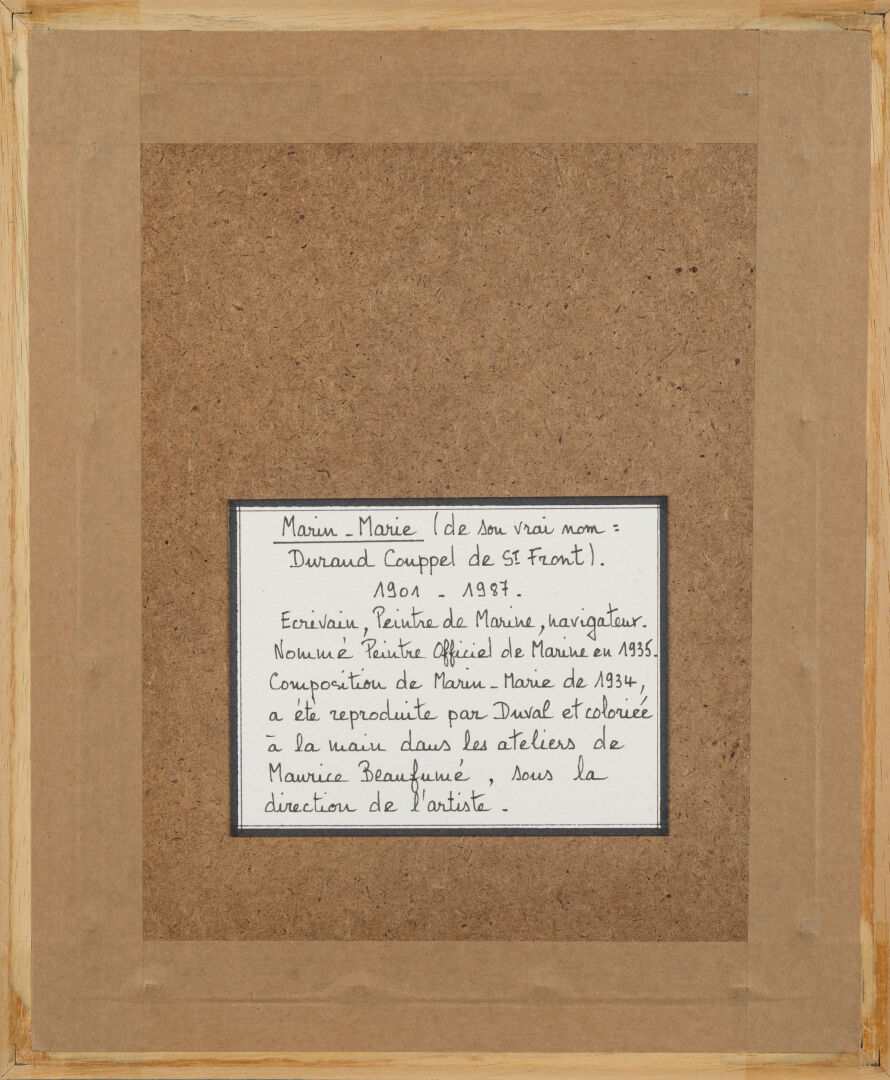 Marin - Marie (de son vrai nom :
Durand Couppel de St Front).
1901 - 1987.
Ecrivain, Peintre de Marine, navigateur.
Nommé Peintre Officiel de Marine en 1935.
Composition de Marin - Marie de 1934,
a été reproduite par Duval et coloriée
à la main dans les ateliers de
Maurice Beaufumé, sous la
direction de l'artiste -